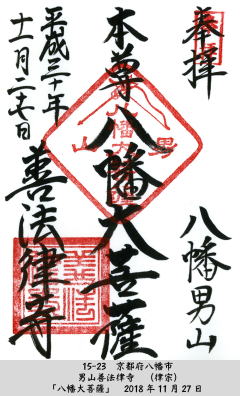 奉拝
八幡男山
本尊八幡大菩薩
平成三十年
十一月二十七日
善法律寺
男山
八幡大
善法律寺
15-23 京都府八幡市
男山善法律寺 (律宗)
「八幡大菩薩」 2018年11月27日